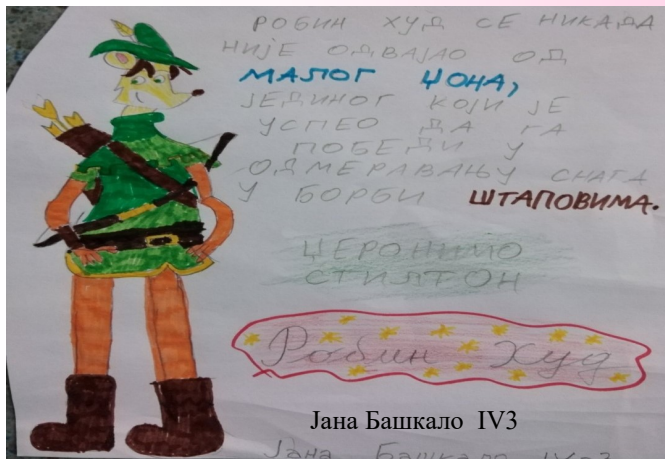 РОБИН ХУД СЕ НИКАДА
НИЈЕ ОДВАЈАО ОД
МАЛОГ ЏОНА,
ЈЕДИНОГ КОЈИ ЈЕ
УСПЕО ДА ГА
ПОБЕДИ У
ОДМЕРАВАЊУ СНАГА
У БОРБИ ШТАПОВИМА.
ЏЕРОНИМО
СТИЛТОН
Робин Худ
Јана Башкало IV3
Јана Башкало IV-3